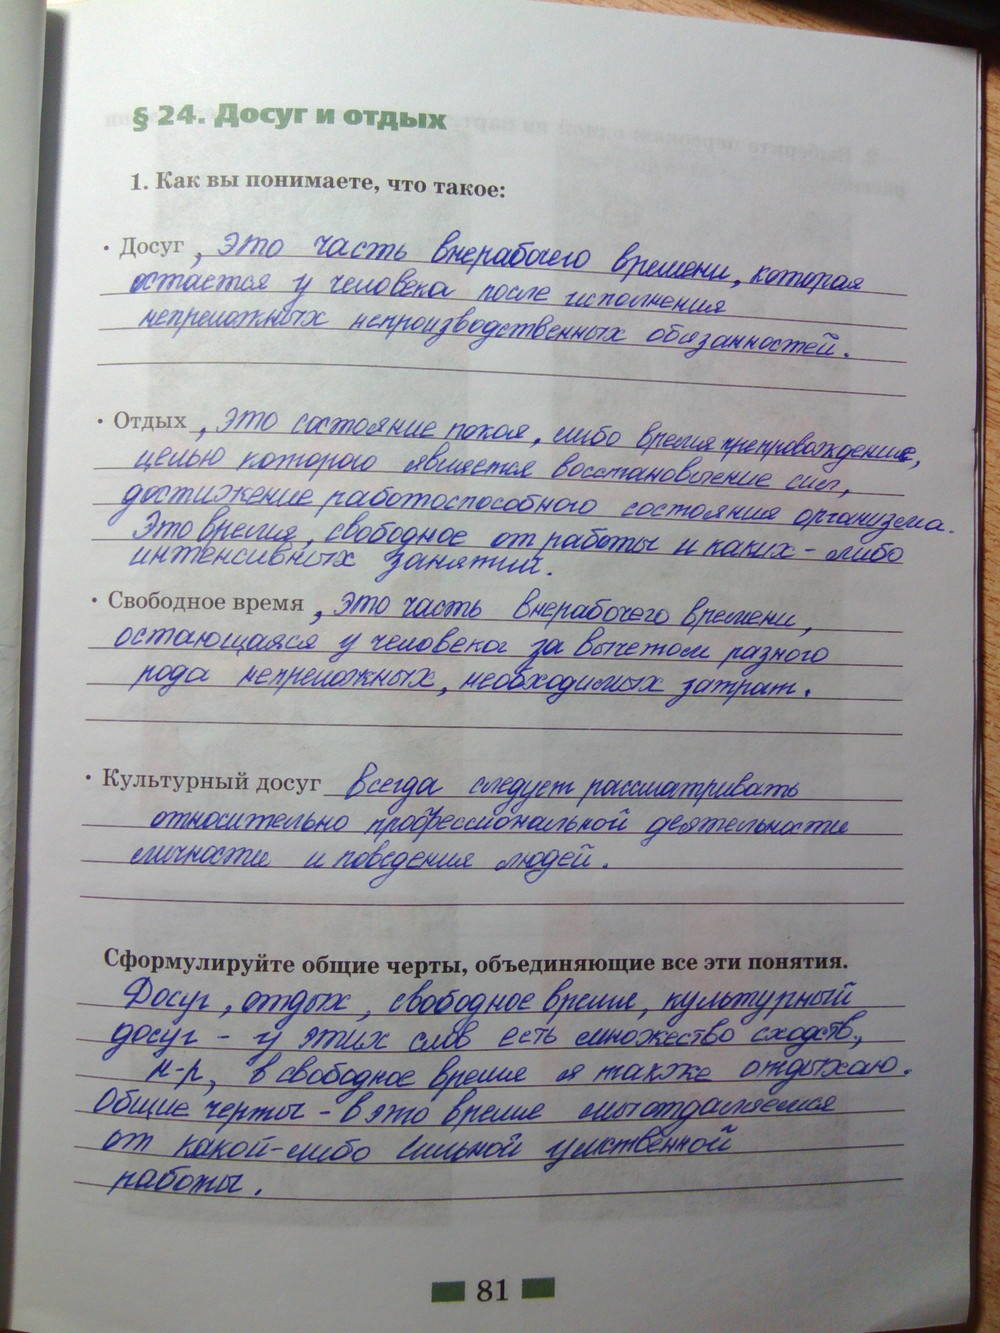 § 24. Досуг и отдых
1. Как вы понимаете, что такое:
• Досуг, это часть внерабочего времени, которая
остаётся у человека после исполнения
непреложных непроизводственных обязанностей.
• Отдых, это состояние покоя, либо время препровождение,
целью которого является восстановление сил,
достижение работоспособного состояния организма.
Это время, свободное от работы и каких-либо
интенсивных занятий.
• Свободное время, это часть внерабочего времени,
остающаяся у человека за вычетом разного
рода непреложных, необходимых затрат.
• Культурный досуг всегда следует рассматривать
относительно профессиональной деятельности
личности и поведения людей.
Сформулируйте общие черты, объединяющие все эти понятия.
Досуг, отдых, свободное время, культурный
досуг - у этих слов есть множество сходств,
н-р, в свободное время я также отдыхаю.
Общие черты - в это время мы отдаляемся
от какой-либо сильной умственной
работы.
81